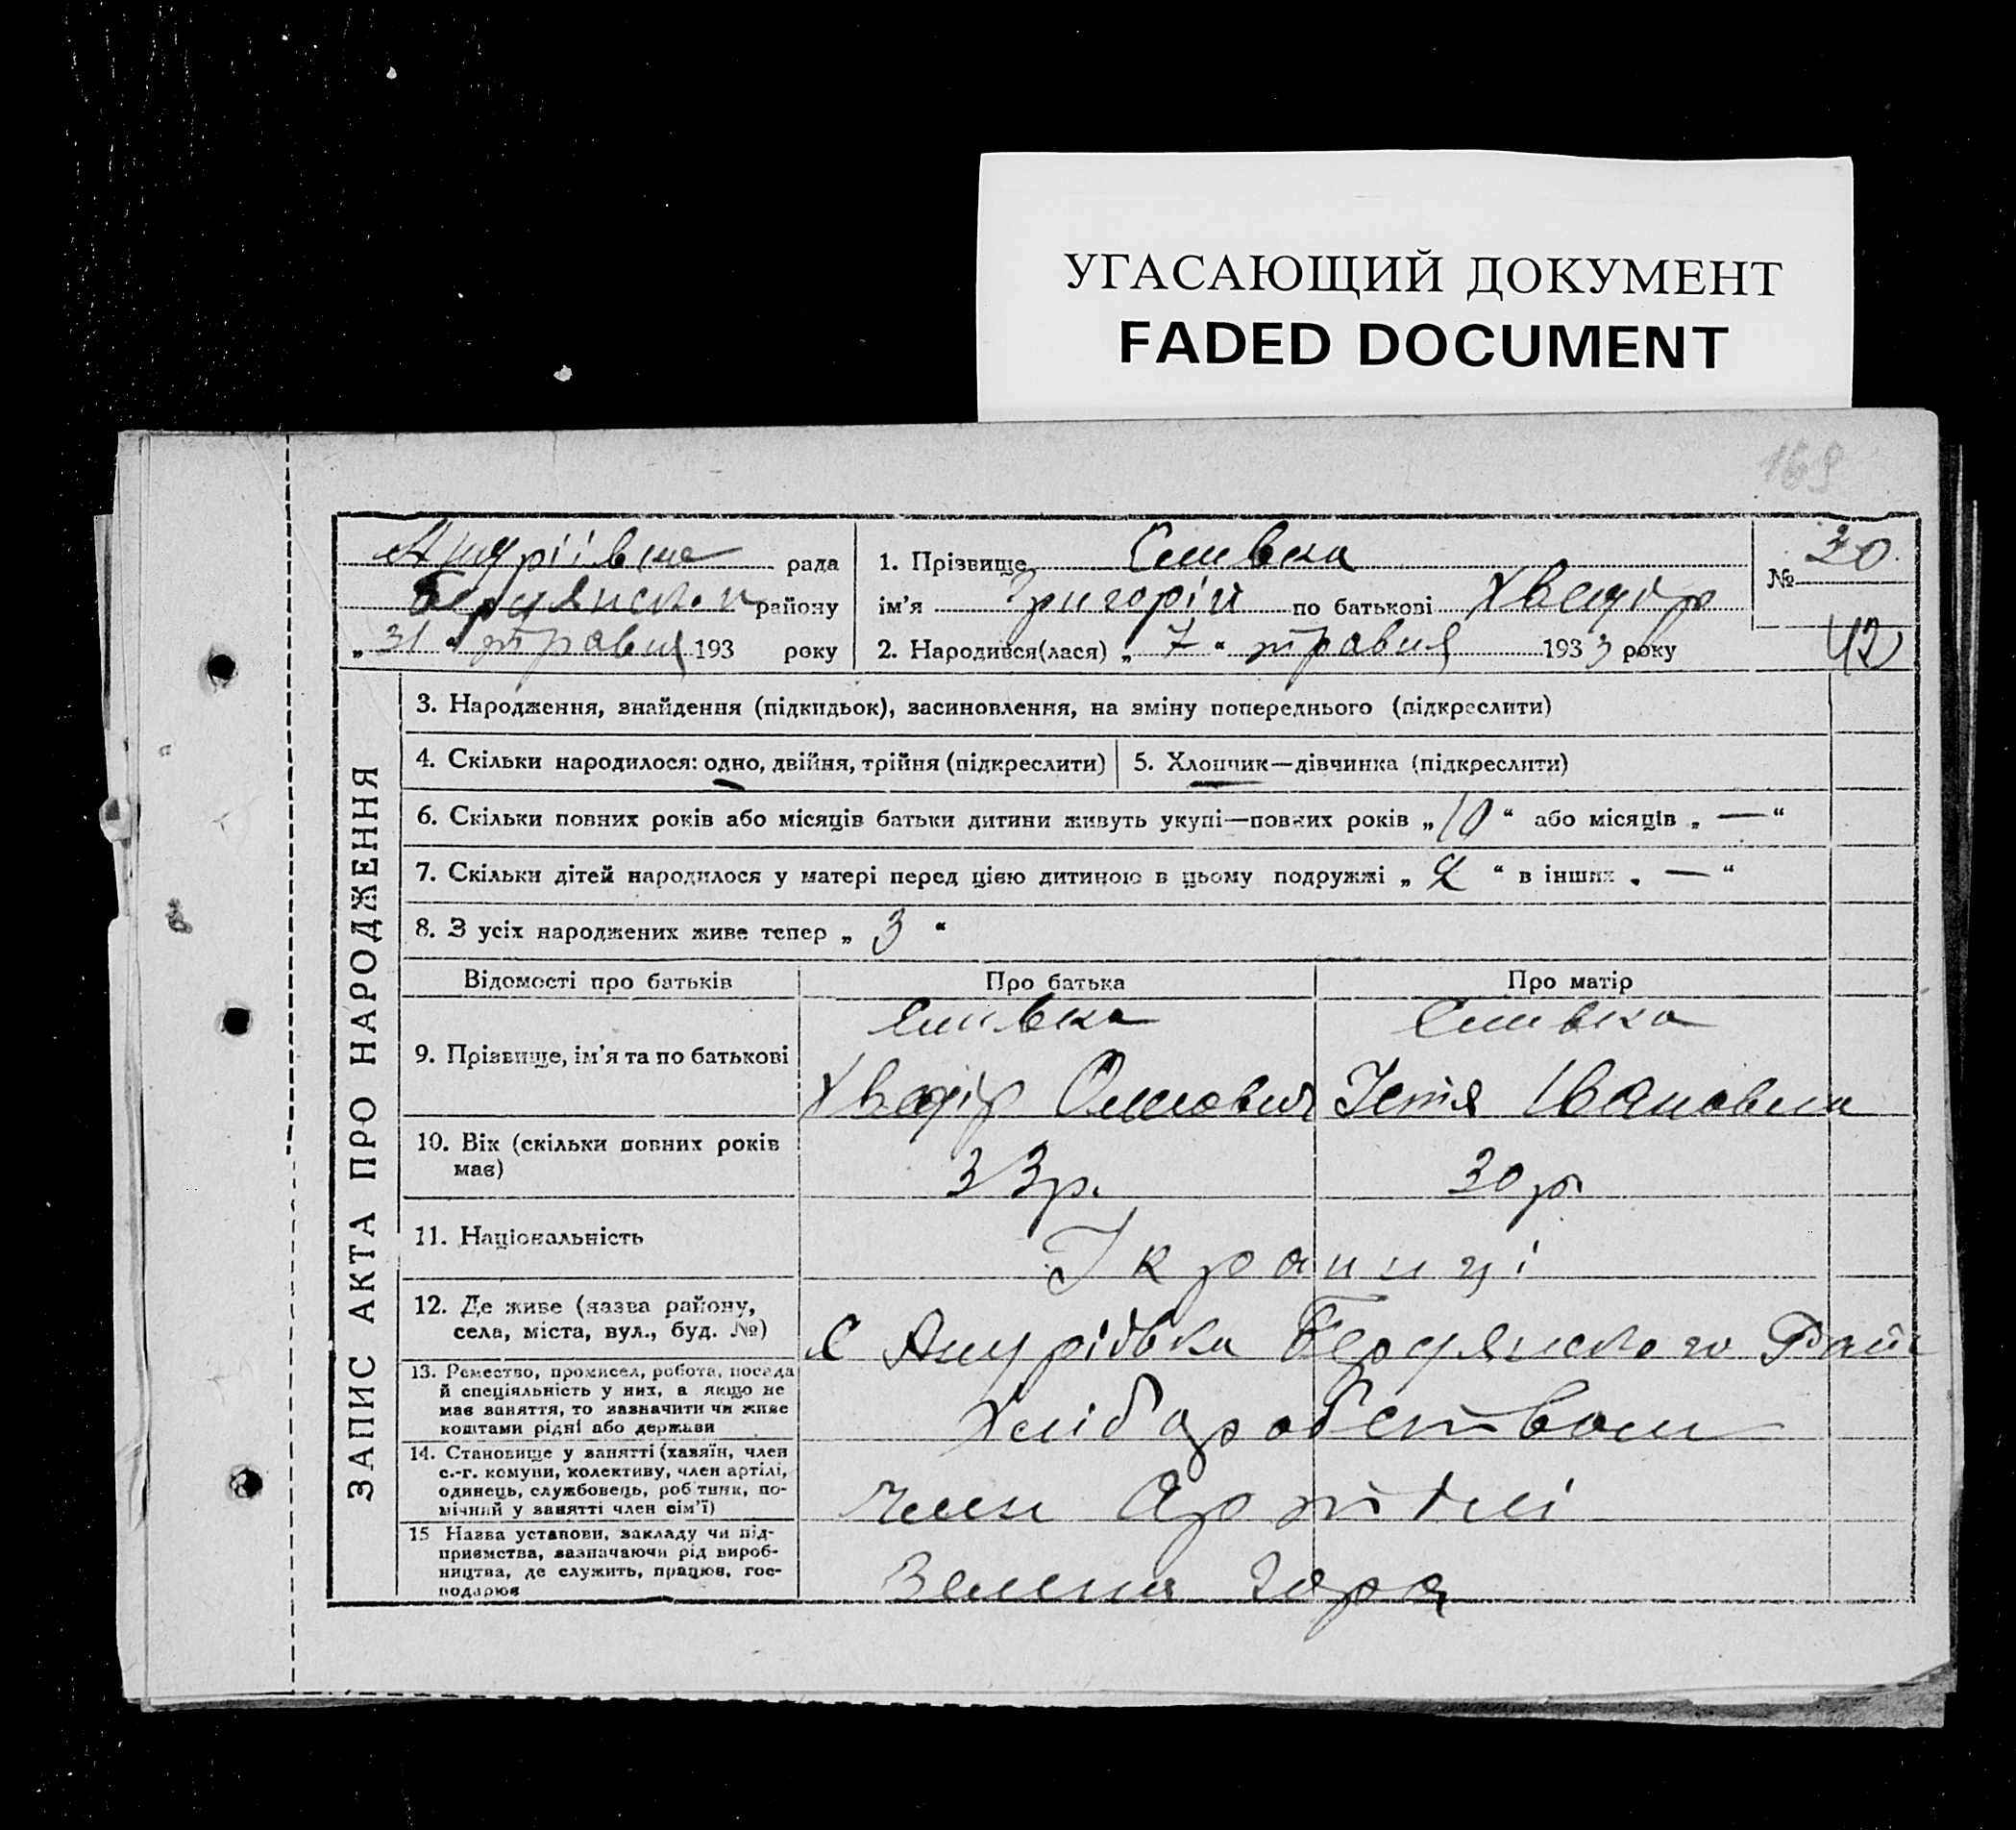 УГАСАЮЩИЙ ДОКУМЕНТ
FADED DOCUMENT
169
рада
району
„31“ травня 193 року
1. Прізвище Сливка
ім'я Григорій по батькові Хведір
2. Народився(лася) „7“ травня 1933 року
№ 30
42
ЗАПИС АКТА ПРО НАРОДЖЕННЯ
3. Народження, знайдення (підкидьок), засиновлення, на зміну попереднього (підкреслити)
4. Скільки народилося: одно, двійня, трійня (підкреслити)
5. Хлопчик—дівчинка (підкреслити)
6. Скільки повних років або місяців батьки дитини живуть укупі—повних років „10“ або місяців „—“
7. Скільки дітей народилося у матері перед цією дитиною в цьому подружжі „2“ в інших „—“
8. З усіх народжених живе тепер „3“
Відомості про батьків
Про батька
Про матір
9. Прізвище, ім'я та по батькові
Сливка
Хведір
Сливка
Івановна
10. Вік (скільки повних років
має)
33р.
30р.
11. Національність
Українці
12. Де живе (назва району,
села, міста, вул., буд. №)
с Бердянського Рай
13. Ремество, промисел, робота, посада
й спеціяльність у них, а якщо не
має заняття, то зазначити чи живе
коштами рідні або держави
Хліборобством
14. Становище у занятті (хазяїн, член
с.-г. комуни, колективу, член артілі,
одинець, службовець, робітник, по-
мічний у занятті член сім'ї)
член Артілі
15 Назва установи, закладу чи під-
приємства, зазначаючи рід вироб-
ництва, де служить, працює, гос-
подарює
Зелена гора